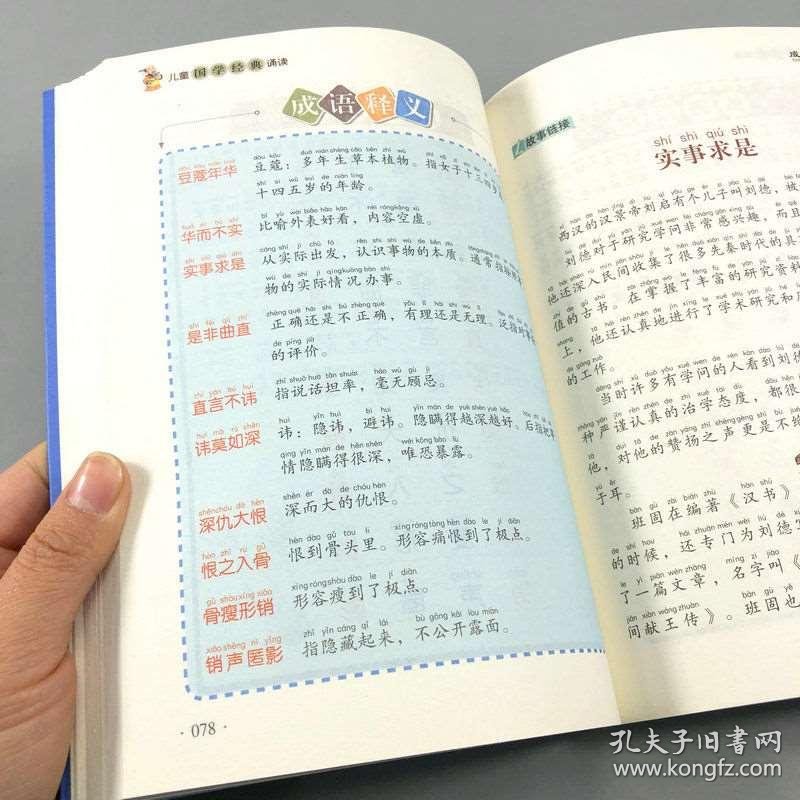 儿童国学经典诵读
成语释义
豆蔻年华
豆蔻：多年生草本植物。指女子十三四岁
十四五岁的年龄。
华而不实
比喻外表好看，内容空虚。
实事求是
从实际出发，认识事物的本质。通常指按照事
物的实际情况办事。
是非曲直
正确还是不正确，有理还是无理。泛指对事
的评价。
直言不讳
指说话坦率，毫无顾忌。
讳莫如深
讳：隐讳，避讳。隐瞒得越深越好。后指把事
情隐瞒得很深，唯恐暴露。
深仇大恨
深而大的仇恨。
恨之入骨
恨到骨头里。形容痛恨到了极点。
骨瘦形销
形容瘦到了极点。
销声匿影
指隐藏起来，不公开露面。
·078·
成
故事链接
shí shì qiú shì
实事求是
西汉的汉景帝刘启有个儿子叫刘德，被
刘德对于研究学问非常感兴趣，而且
他还深入民间收集了很多先秦时代的具
值的古书。在掌握了丰富的研究资料
上，他还认真地进行了学术研究和
的工作。
当时许多有学问的人看到刘德
种严谨认真的治学态度，都很
他，对他的赞扬之声更是不绝
于耳。
班固在编著《汉书》
的时候，还专门为刘德写
了一篇文章，名字叫《
间献王传》。班固也
孔夫子旧书网
www.kongfz.com